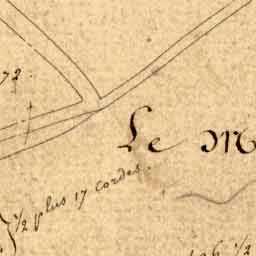 72.
Le M
½ plus 17 cordes.
½